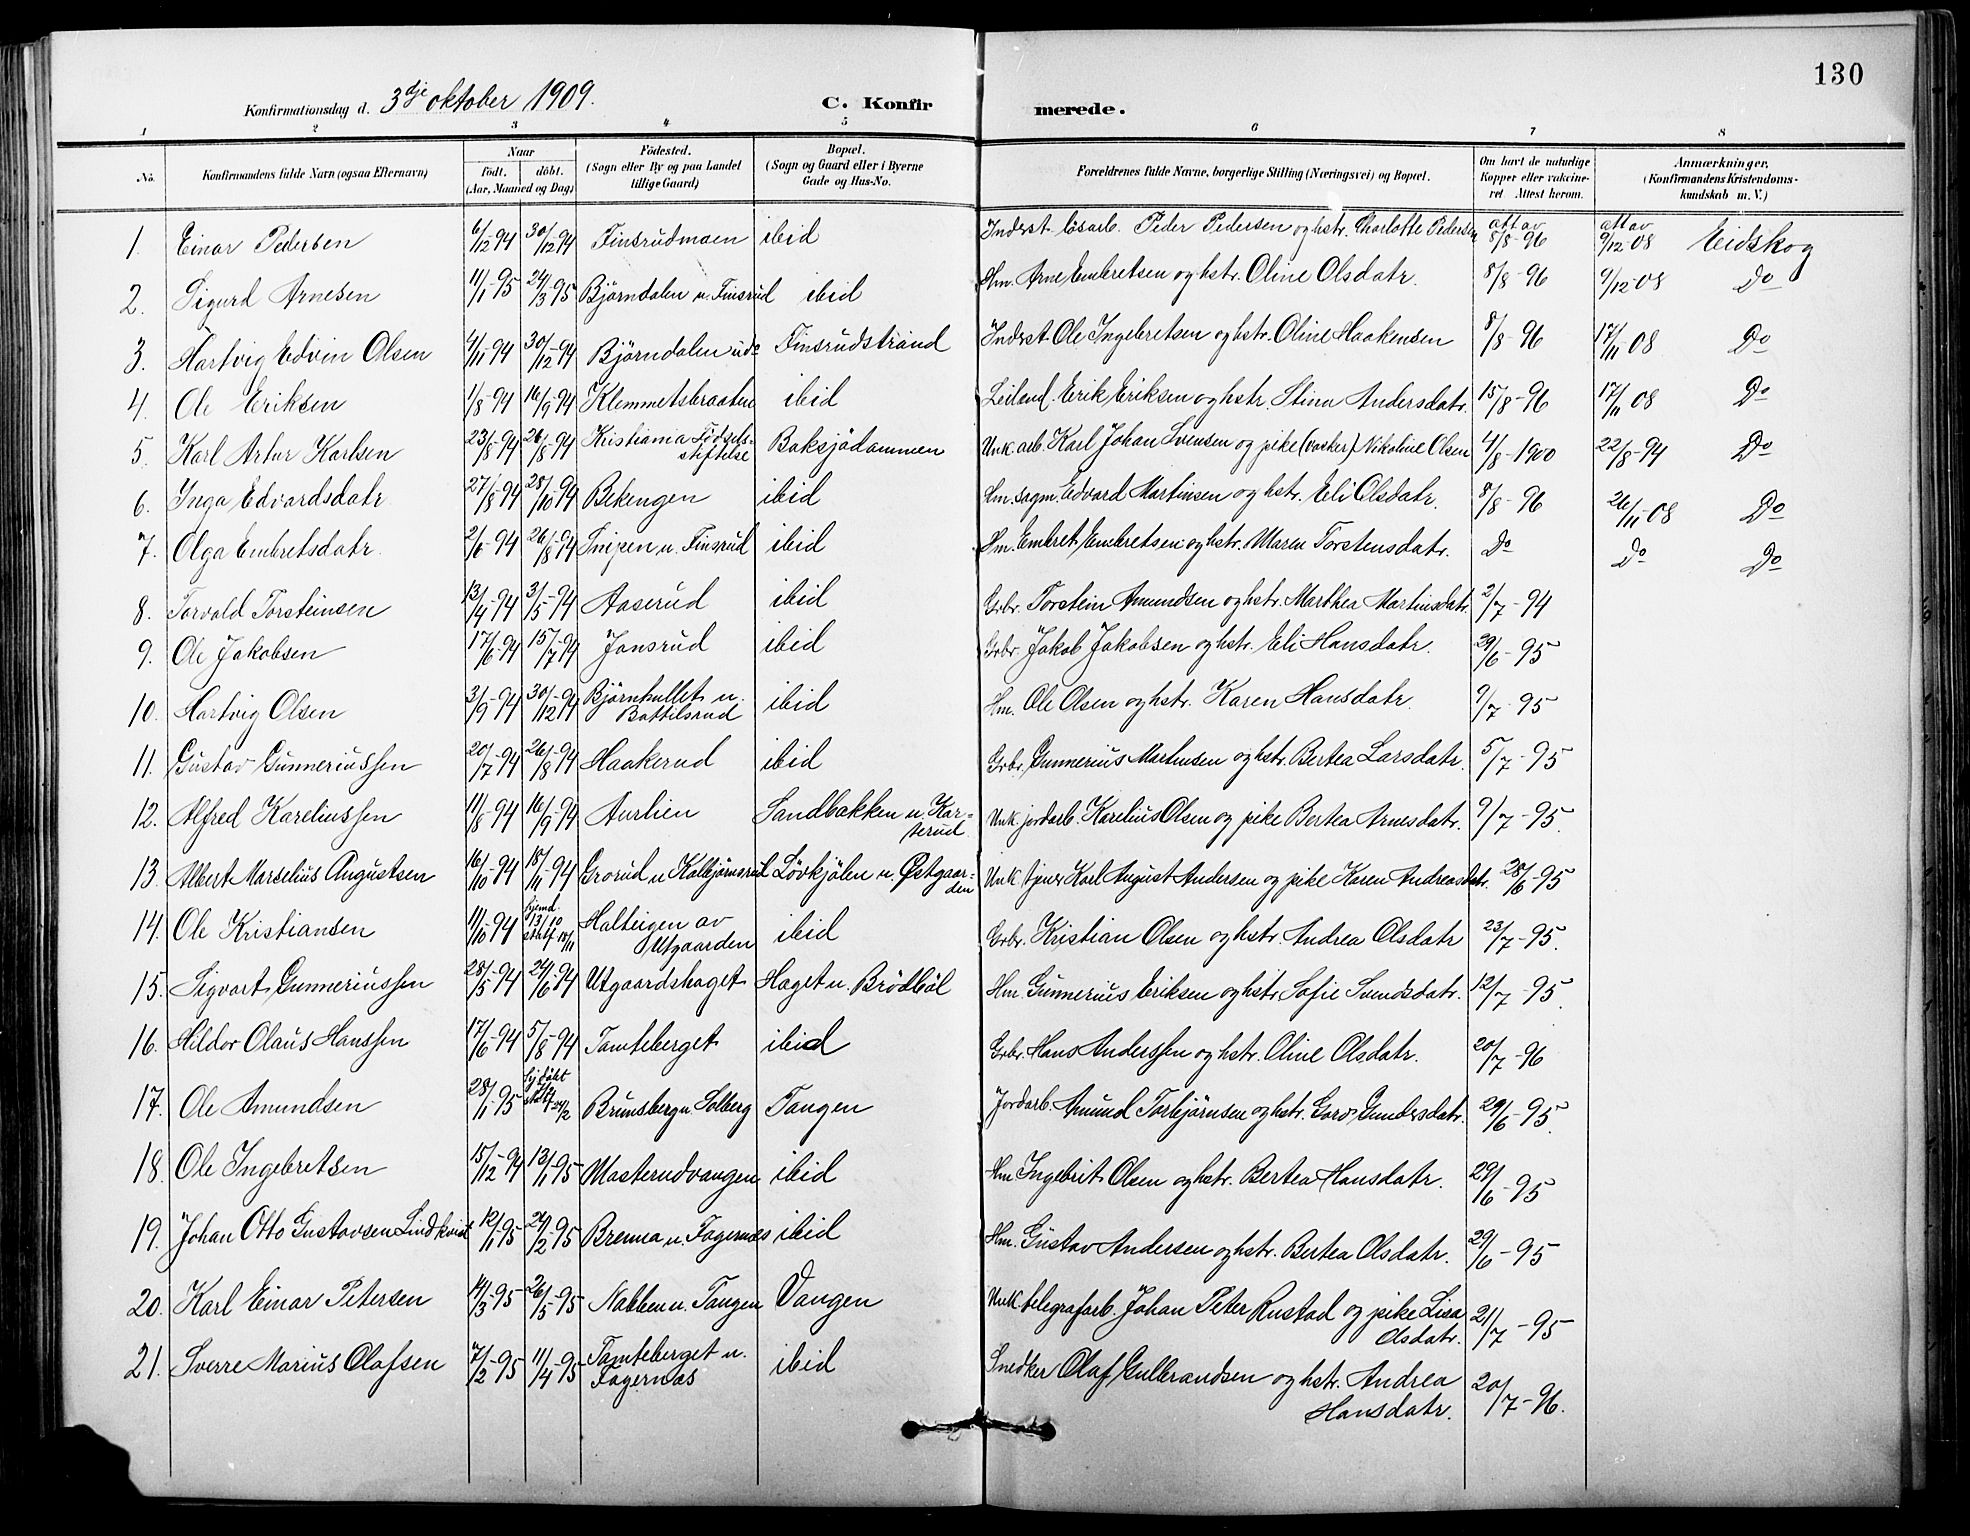 130
Konfirmationsdag d. 3dje oktober 1909.
C. Konfir merede.
1 2 3 4 5 6 7 8
No. Konfirmandens fulde Navn (ogsaa Efternavn) Naar födt. döbt. (Aar, Maaned og Dag) Födested. (Sogn eller By og paa Landet tillige Gaard) Bopæl. (Sogn og Gaard eller i Byerne Gade og Hus-No. Forældrenes fulde Navne, borgerlige Stilling (Næringsvei) og Bopæl. Om havt de naturlige Kopper eller vaccineret. Attest herom. Anmærkninger. (Konfirmandens Kristendomskundskab m. V.)
1. Einar Pedersen 6/12-94 30/12-94 Finsrudmoen ibid Inderst lösarb. Peder Pedersen og hstr. Charlotte Pedersen att av 8/8-96 att av 9/12-08 Eidskog
2. Sigurd Arnesen 11/1-95 24/3-95 Björndalen u. Finsrud ibid Hm. Arne Embretsen og hstr. Oline Olsdatr. 8/8-96 9/12-08 Do
3. Hartvig Edvin Olsen 4/11-94 30/12-94 Björndalen uds Finsrudstrand Inderst Ole Ingebretsen og hstr. Oline Haakensen 8/8-96 17/11-08 Do
4. Ole Eriksen 1/8-94 16/9-94 Klemmetsbraaten ibid Leilend. Erik Eriksen og hstr. Stina Andersdatr. 15/8-96 17/11 08 Do
5. Karl Artur Karlsen 23/8-94 26/8-94 Kristiania Födselsstiftelse Baksjödammen Unk. arb. Karl Johan Svensen og pike (vasker) Nikoline Olsen 4/8-1900 22/8-94 Do
6. Inga Edvardsdatr 27/8-94 28/10-94 Bekengen ibid Hm. sagm. Edvard Martinsen og hstr. Eli Olsdatr. 8/8-96 26/11-08 Do
7. Olga Embretsdatr. 2/6-94 26/8-94 Snipen u. Finsrud ibid Hm. Embret Embretsen og hstr. Maren Torstensdatr. Do Do Do
8. Torvald Torsteinsen 13/4-94 3/5-94 Aaserud ibid Grbr. Torstein Amundsen og hstr. Marthea Martinsdatr. 2/7-94
9. Ole Jakobsen 17/6-94 15/7-94 Jonsrud ibid Grbr. Jakob Jakobsen og hstr. Eli Hansdatr. 29/6-95
10. Hartvig Olsen 3/9-94 30/12-94 Björnhullet u. Bottilsrud ibid Hm. Ole Olsen og hstr. Karen Hansdatr. 9/7-95
11. Gustav Gunneriussen 20/7-94 26/8-94 Haakerud ibid Grbr. Gunnerius Martinsen og hstr. Bertea Larsdatr. 5/7-95
12. Alfred Kareliussen 11/8-94 16/9-94 Aurlien Sandbakken u. Karterud Unk. jordarb. Karelius Olsen og pike Bertea Arnesdatr. 9/7-95
13. Albert Marselius Augustsen 16/10-94 18/11-94 Grorud u Kolbjörnsrud Lövkjölen u. Østgaarden Unk. tjener Karl August Andersen og pike Karen Andreasdatr. 28/6-95
14. Ole Kristiansen 11/10-94 hjemd. 13/10 Halteigen av Utgaarden ibid Grbr. Kristian Olsen og hstr. Andrea Olsdatr 23/7-95.
15. Sigvart Gunneriussen 28/5-94 24/6-94 Utgaardshaget Haget u. Brödböl Hm. Gunnerius Eriksen og hstr Sofie Svendsdatr. 12/7-95
16. Hildor Olaus Hanssen 17/6-94 5/8-94 Tamteberget ibid Grbr. Hans Anderssen og hstr. Oline Olsdatr. 20/7-96
17. Ole Amundsen 28/1-95 hj döbt Brunsberg u. Solberg Tangen Jordarb. Amund Torbjörnsen og hstr. Goro Gundersdatr. 29/6-95.
18. Ole Ingebretsen 15/12-94 13/1-95 Masterudvangen ibid Hm. Ingebrit Olsen og hstr. Bertea Hansdatr. 29/6-95
19. Johan Otto Gustavsen Lindkvist 12/1-95 24/2-95 Brenna u. Fagernæs ibid Hm. Gustav Andersen og hstr. Bertea Olsdatr. 29/6-95
20. Karl Einar Petersen 14/3-95 26/5-95 Nabben u. Tangen Vangen Unk. telegrafarb. Johan Peter Rustad og pike Lisa Olsdatr. 21/7-95
21. Sverre Marius Olafsen 7/2-95 11/4-95 Tamteberget u. Fagernæs ibid Snedker Olaf Gulbrandsen og hstr. Andrea Hansdatr. 20/7-96.